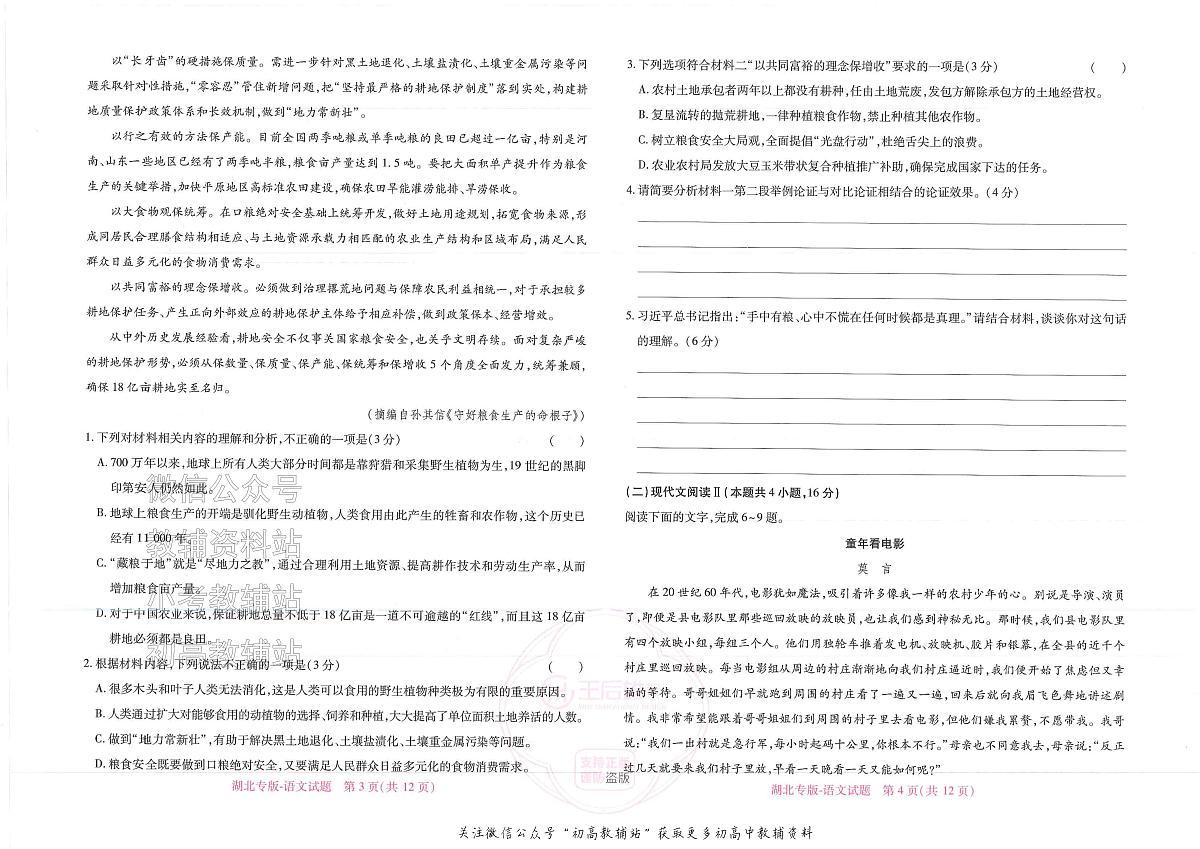 以“长牙齿”的硬措施保质量。需进一步针对黑土地退化、土壤盐渍化、土壤重金属污染等问
题采取针对性措施,“零容忍”管住新增问题,把“坚持最严格的耕地保护制度”落到实处,构建耕
地质量保护政策体系和长效机制,做到“地力常新壮”。
以行之有效的方法保产能。目前全国两季吨粮或单季吨粮的良田已超过一亿亩,特别是河
南、山东一些地区已经有了两季吨半粮,粮食亩产量达到1.5吨。要把大面积单产提升作为粮食
生产的关键举措,加快平原地区高标准农田建设,确保农田旱能灌涝能排、旱涝保收。
以大食物观保统筹。在口粮绝对安全基础上统筹开发,做好土地用途规划,拓宽食物来源,形
成同居民合理膳食结构相适应、与土地资源承载力相匹配的农业生产结构和区域布局,满足人民
群众日益多元化的食物消费需求。
以共同富裕的理念保增收。必须做到治理撂荒地问题与保障农民利益相统一,对于承担较多
耕地保护任务、产生正向外部效应的耕地保护主体给予相应补偿,做到政策保本、经营增效。
从中外历史发展经验看,耕地安全不仅事关国家粮食安全,也关乎文明存续。面对复杂严峻
的耕地保护形势,必须从保数量、保质量、保产能、保统筹和保增收5个角度全面发力,统筹兼顾,
确保18亿亩耕地实至名归。
(摘编自孙其信《守好粮食生产的命根子》)
1. 下列对材料相关内容的理解和分析,不正确的一项是(3分) ( )
A. 700万年以来,地球上所有人类大部分时间都是靠狩猎和采集野生植物为生,19世纪的黑脚
印第安人仍然如此。
B. 地球上粮食生产的开端是驯化野生动植物,人类食用由此产生的牲畜和农作物,这个历史已
经有11 000年。
C. “藏粮于地”就是“尽地力之教”,通过合理利用土地资源、提高耕作技术和劳动生产率,从而
增加粮食亩产量。
D. 对于中国农业来说,保证耕地总量不低于18亿亩是一道不可逾越的“红线”,而且这18亿亩
耕地必须都是良田。
2. 根据材料内容,下列说法不正确的一项是(3分) ( )
A. 很多木头和叶子人类无法消化,这是人类可以食用的野生植物种类极为有限的重要原因。
B. 人类通过扩大对能够食用的动植物的选择、饲养和种植,大大提高了单位面积土地养活的人数。
C. 做到“地力常新壮”,有助于解决黑土地退化、土壤盐渍化、土壤重金属污染等问题。
D. 粮食安全既要做到口粮绝对安全,又要满足人民群众日益多元化的食物消费需求。
湖北专版-语文试题 第3页(共12页)
3. 下列选项符合材料二“以共同富裕的理念保增收”要求的一项是(3分) ( )
A. 农村土地承包者两年以上都没有耕种,任由土地荒废,发包方解除承包方的土地经营权。
B. 复垦流转的抛荒耕地,一律种植粮食作物,禁止种植其他农作物。
C. 树立粮食安全大局观,全面提倡“光盘行动”,杜绝舌尖上的浪费。
D. 农业农村局发放大豆玉米带状复合种植推广补助,确保完成国家下达的任务。
4. 请简要分析材料一第二段举例论证与对比论证相结合的论证效果。(4分)
5. 习近平总书记指出:“手中有粮、心中不慌在任何时候都是真理。”请结合材料,谈谈你对这句话
的理解。(6分)
(二)现代文阅读Ⅱ(本题共4小题,16分)
阅读下面的文字,完成6~9题。
童年看电影
莫 言
在20世纪60年代,电影犹如魔法,吸引着许多像我一样的农村少年的心。别说是导演、演员
了,即便是县电影队里那些巡回放映的放映员,也让我们感到神秘无比。那时候,我们县电影队里
有四个放映小组,每组三个人。他们用独轮车推着发电机、放映机、胶片和银幕,在全县的近千个
村庄里巡回放映。每当电影组从周边的村庄渐渐地向我们村庄逼近时,我们便开始了焦虑但又幸
福的等待。哥哥姐姐们早就跑到周围的村庄看了一遍又一遍,回来后就向我眉飞色舞地讲述剧
情。我非常希望能跟着哥哥姐姐们到周围的村子里去看电影,但他们嫌我累赘,不愿带我。我哥
说:“我们一出村就是急行军,每小时起码十公里,你根本不行。”母亲也不同意我去,母亲说:“反正
过几天就要来我们村子里放,早看一天晚看一天又能如何呢?”
湖北专版-语文试题 第4页(共12页)
微信公众号
教辅资料站
小考教辅站
初高教辅站
支持正版
谨防
盗版
关注微信公众号“初高教辅站”获取更多初高中教辅资料